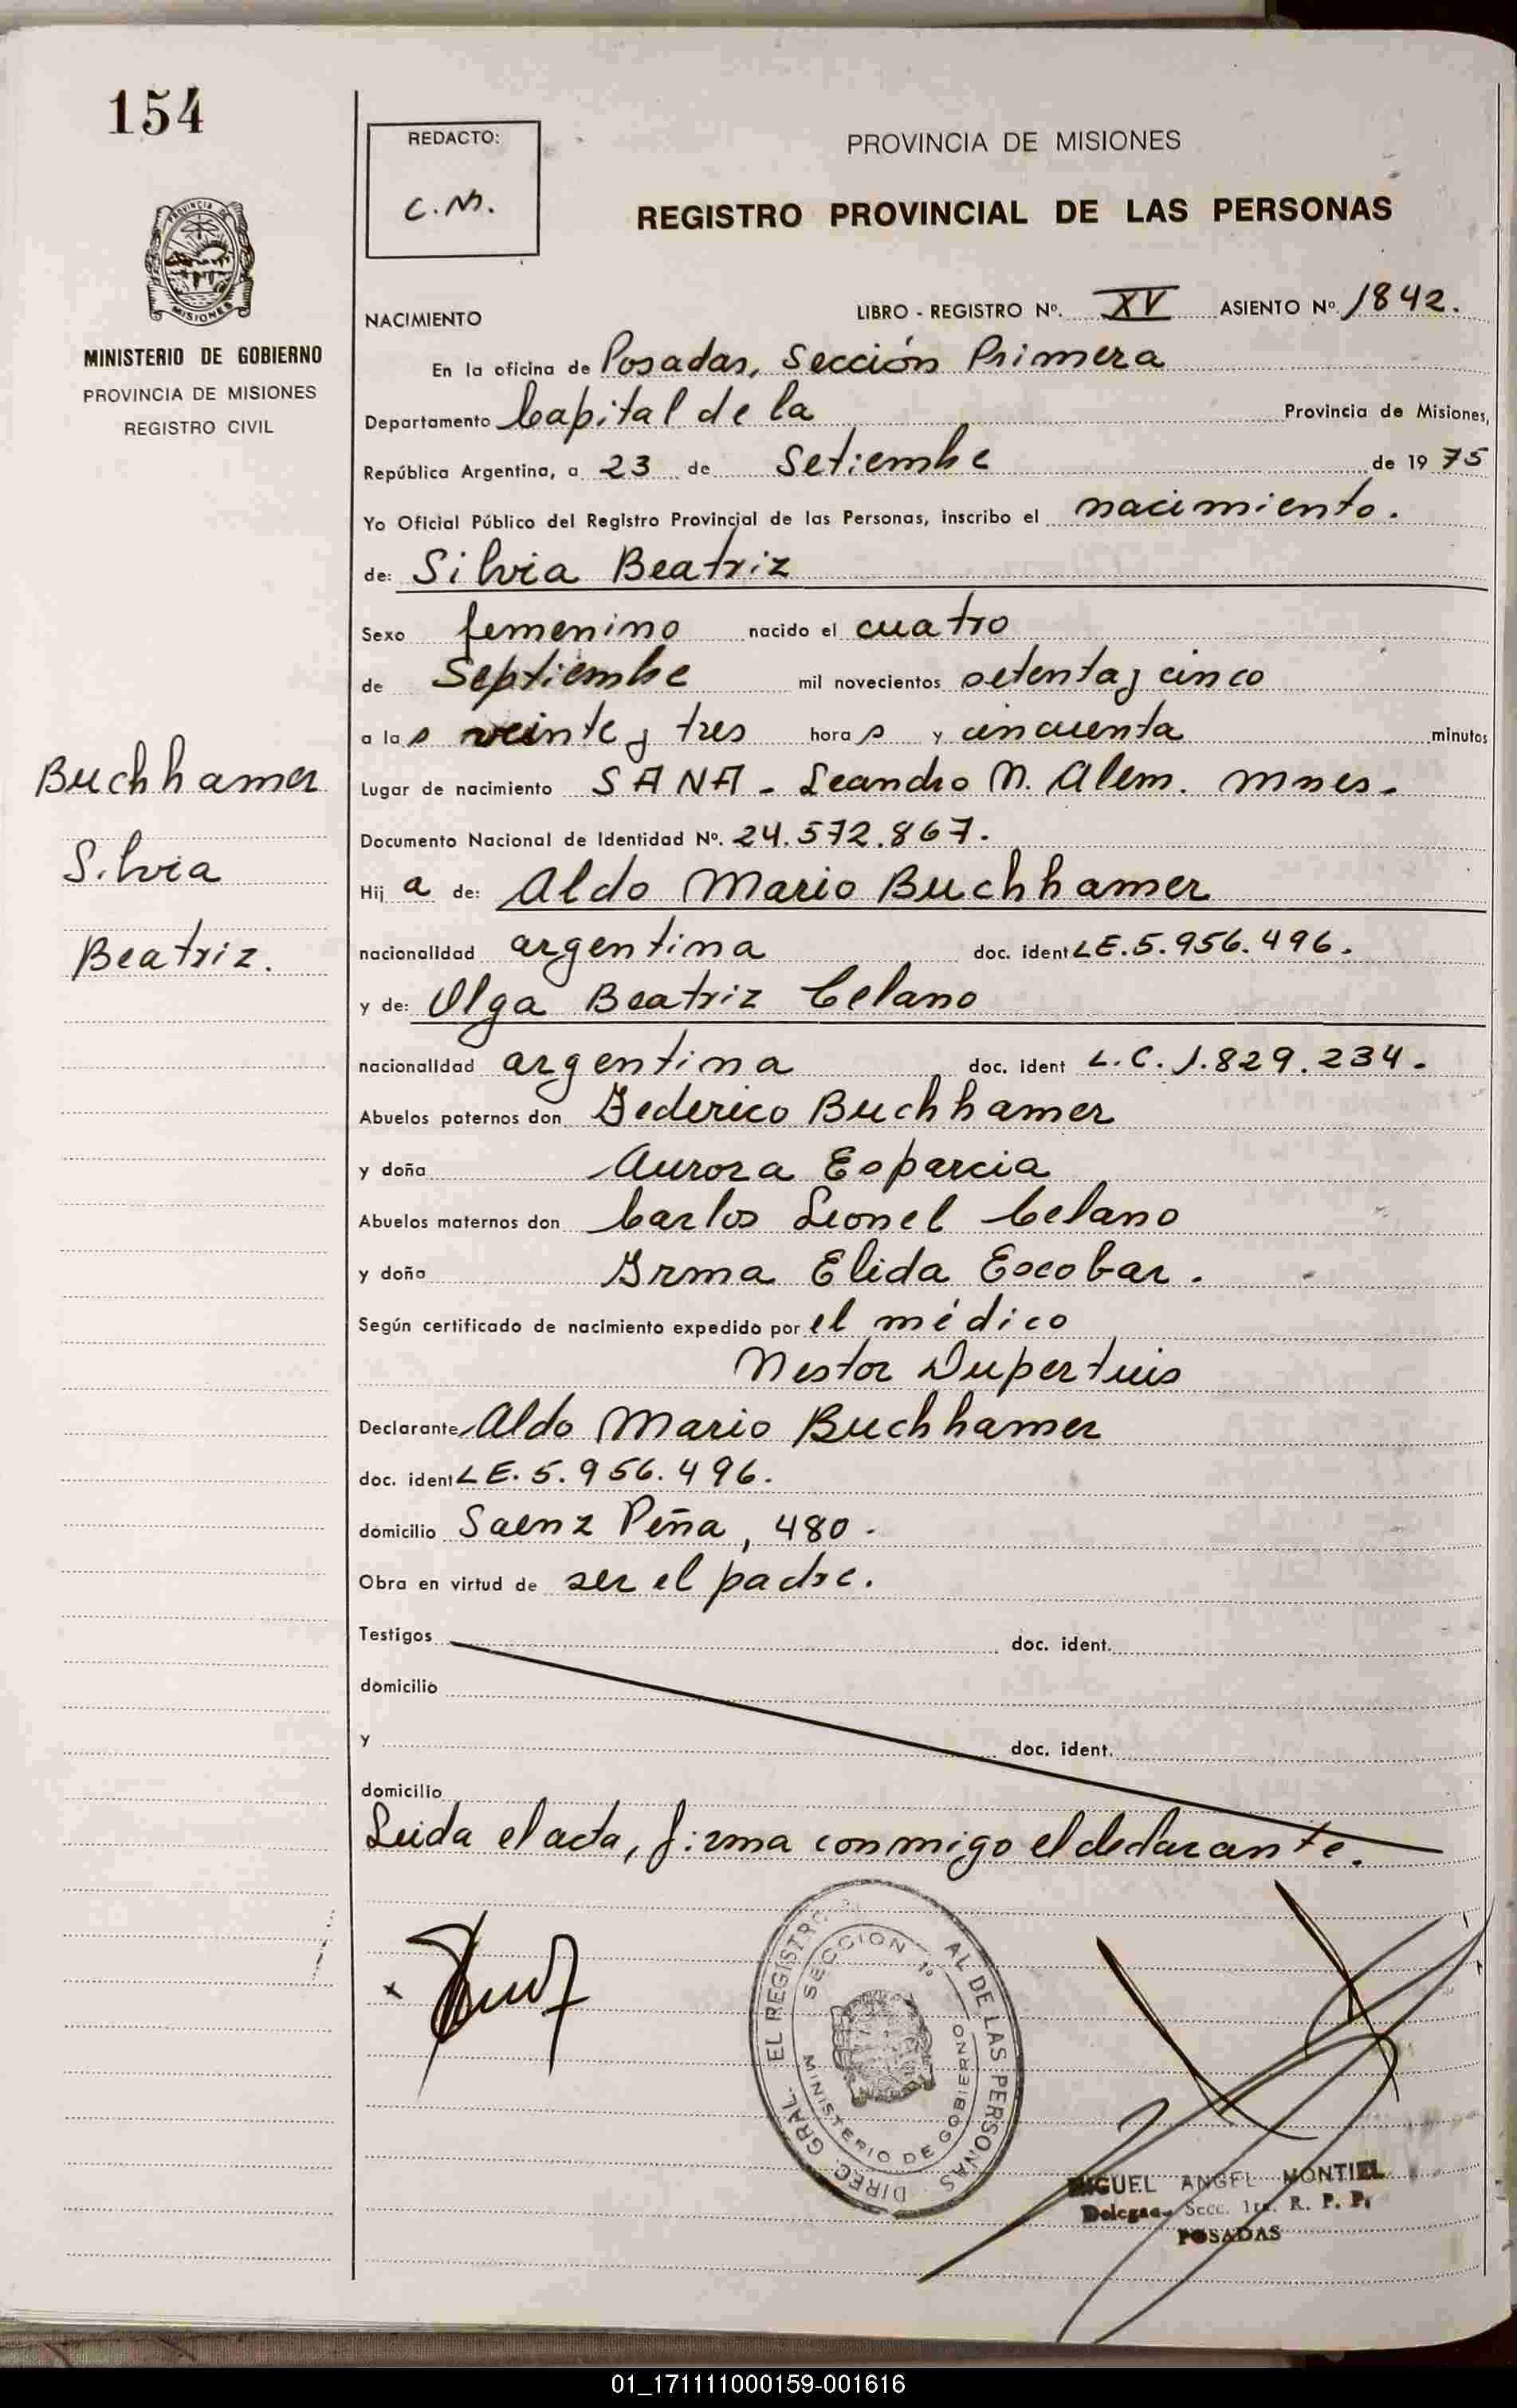 154
REDACTO:
C.M.
PROVINCIA DE MISIONES
REGISTRO PROVINCIAL DE LAS PERSONAS
PROVINCIA DE
MISIONES
MINISTERIO DE GOBIERNO
PROVINCIA DE MISIONES
REGISTRO CIVIL
NACIMIENTO LIBRO - REGISTRO Nº. XV ASIENTO Nº 1842.
En la oficina de Posadas, Sección Primera
Departamento Capital de la Provincia de Misiones,
República Argentina, a 23 de Setiembre de 1975
Yo Oficial Público del Registro Provincial de las Personas, inscribo el nacimiento.
de: Silvia Beatriz
Sexo femenino nacido el cuatro
de Septiembre mil novecientos setenta y cinco
a las veinte y tres horas y cincuenta minutos
Buchhamer
Silvia
Beatriz.
Lugar de nacimiento SANA - Leandro N. Alem. Mnes.
Documento Nacional de Identidad Nº. 24.572.867.
Hija de: Aldo Mario Buchhamer
nacionalidad argentina doc. ident LE.5.956.496.
y de: Olga Beatriz Celano
nacionalidad argentina doc. ident L.C.1.829.234.
Abuelos paternos don Federico Buchhamer
y doña Aurora Esparcia
Abuelos maternos don Carlos Leonel Celano
y doña Irma Elida Escobar.
Según certificado de nacimiento expedido por el médico
Nestor Dupertuis
Declarante Aldo Mario Buchhamer
doc. ident LE.5.956.496.
domicilio Saenz Peña, 480.
Obra en virtud de ser el padre.
Testigos doc. ident.
domicilio
y doc. ident.
domicilio
Leida el acta, firma conmigo el declarante.
DIREC. GRAL. EL REGISTRO AL DE LAS PERSONAS
SECCION 1º
MINISTERIO DE GOBIERNO
MIGUEL ANGEL MONTIEL
Secc. 1ra. R. P. P.
POSADAS
01_171111000159-001616